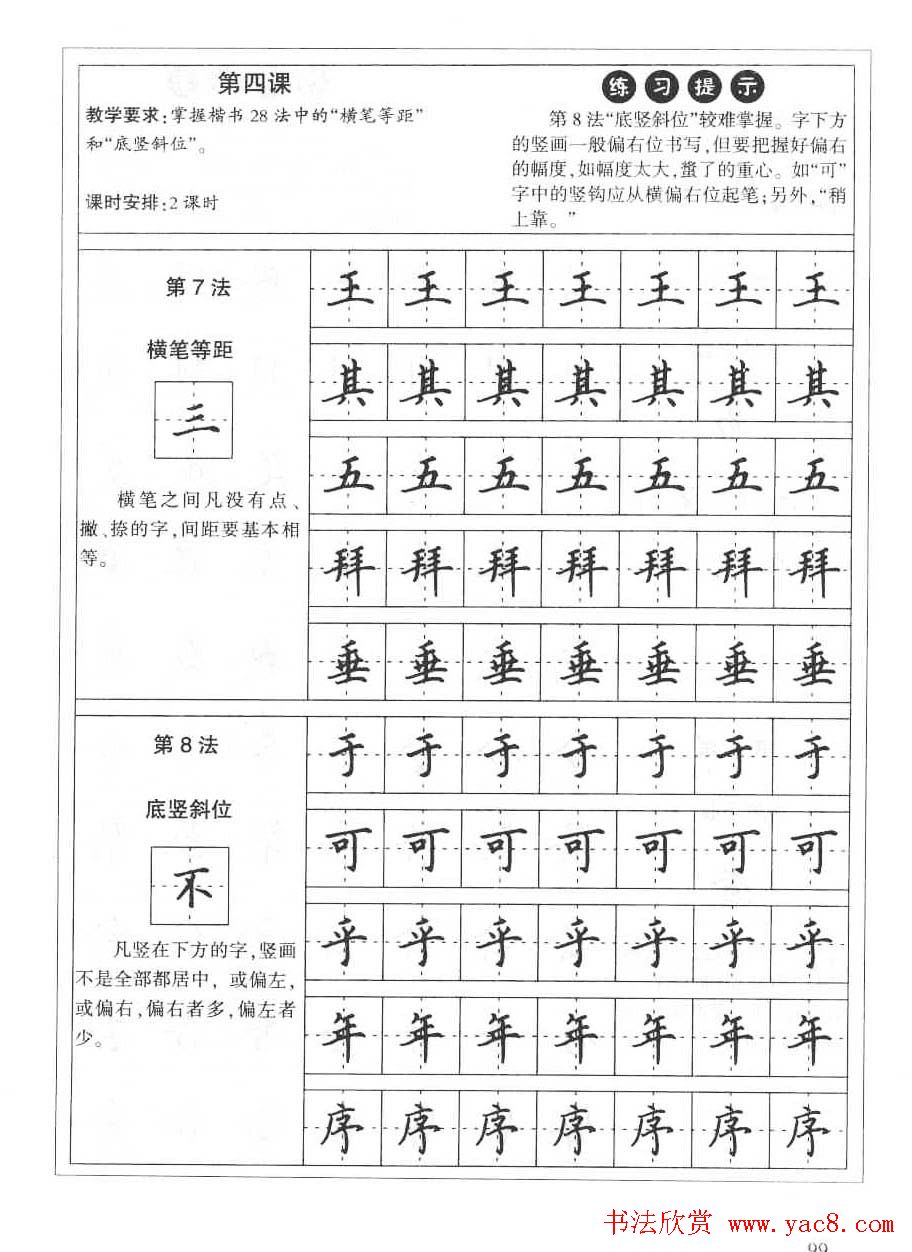 第四课
教学要求:掌握楷书 28 法中的“横笔等距”
和“底竖斜位”。
课时安排:2 课时
练习提示
第 8 法“底竖斜位”较难掌握。字下方
的竖画一般偏右位书写,但要把握好偏右
的幅度,如幅度太大,蜇了的重心。如“可”
字中的竖钩应从横偏右位起笔;另外,“稍
上靠。”
第 7 法
横笔等距
三
横笔之间凡没有点、
撇、捺的字,间距要基本相
等。
王王王王王王王
其其其其其其其
五五五五五五五
拜拜拜拜拜拜拜
垂垂垂垂垂垂垂
第 8 法
底竖斜位
不
凡竖在下方的字,竖画
不是全部都居中, 或偏左,
或偏右,偏右者多,偏左者
少。
于于于于于于于
可可可可可可可
乎乎乎乎乎乎乎
年年年年年年年
序序序序序序序
书法欣赏 www.yac8.com